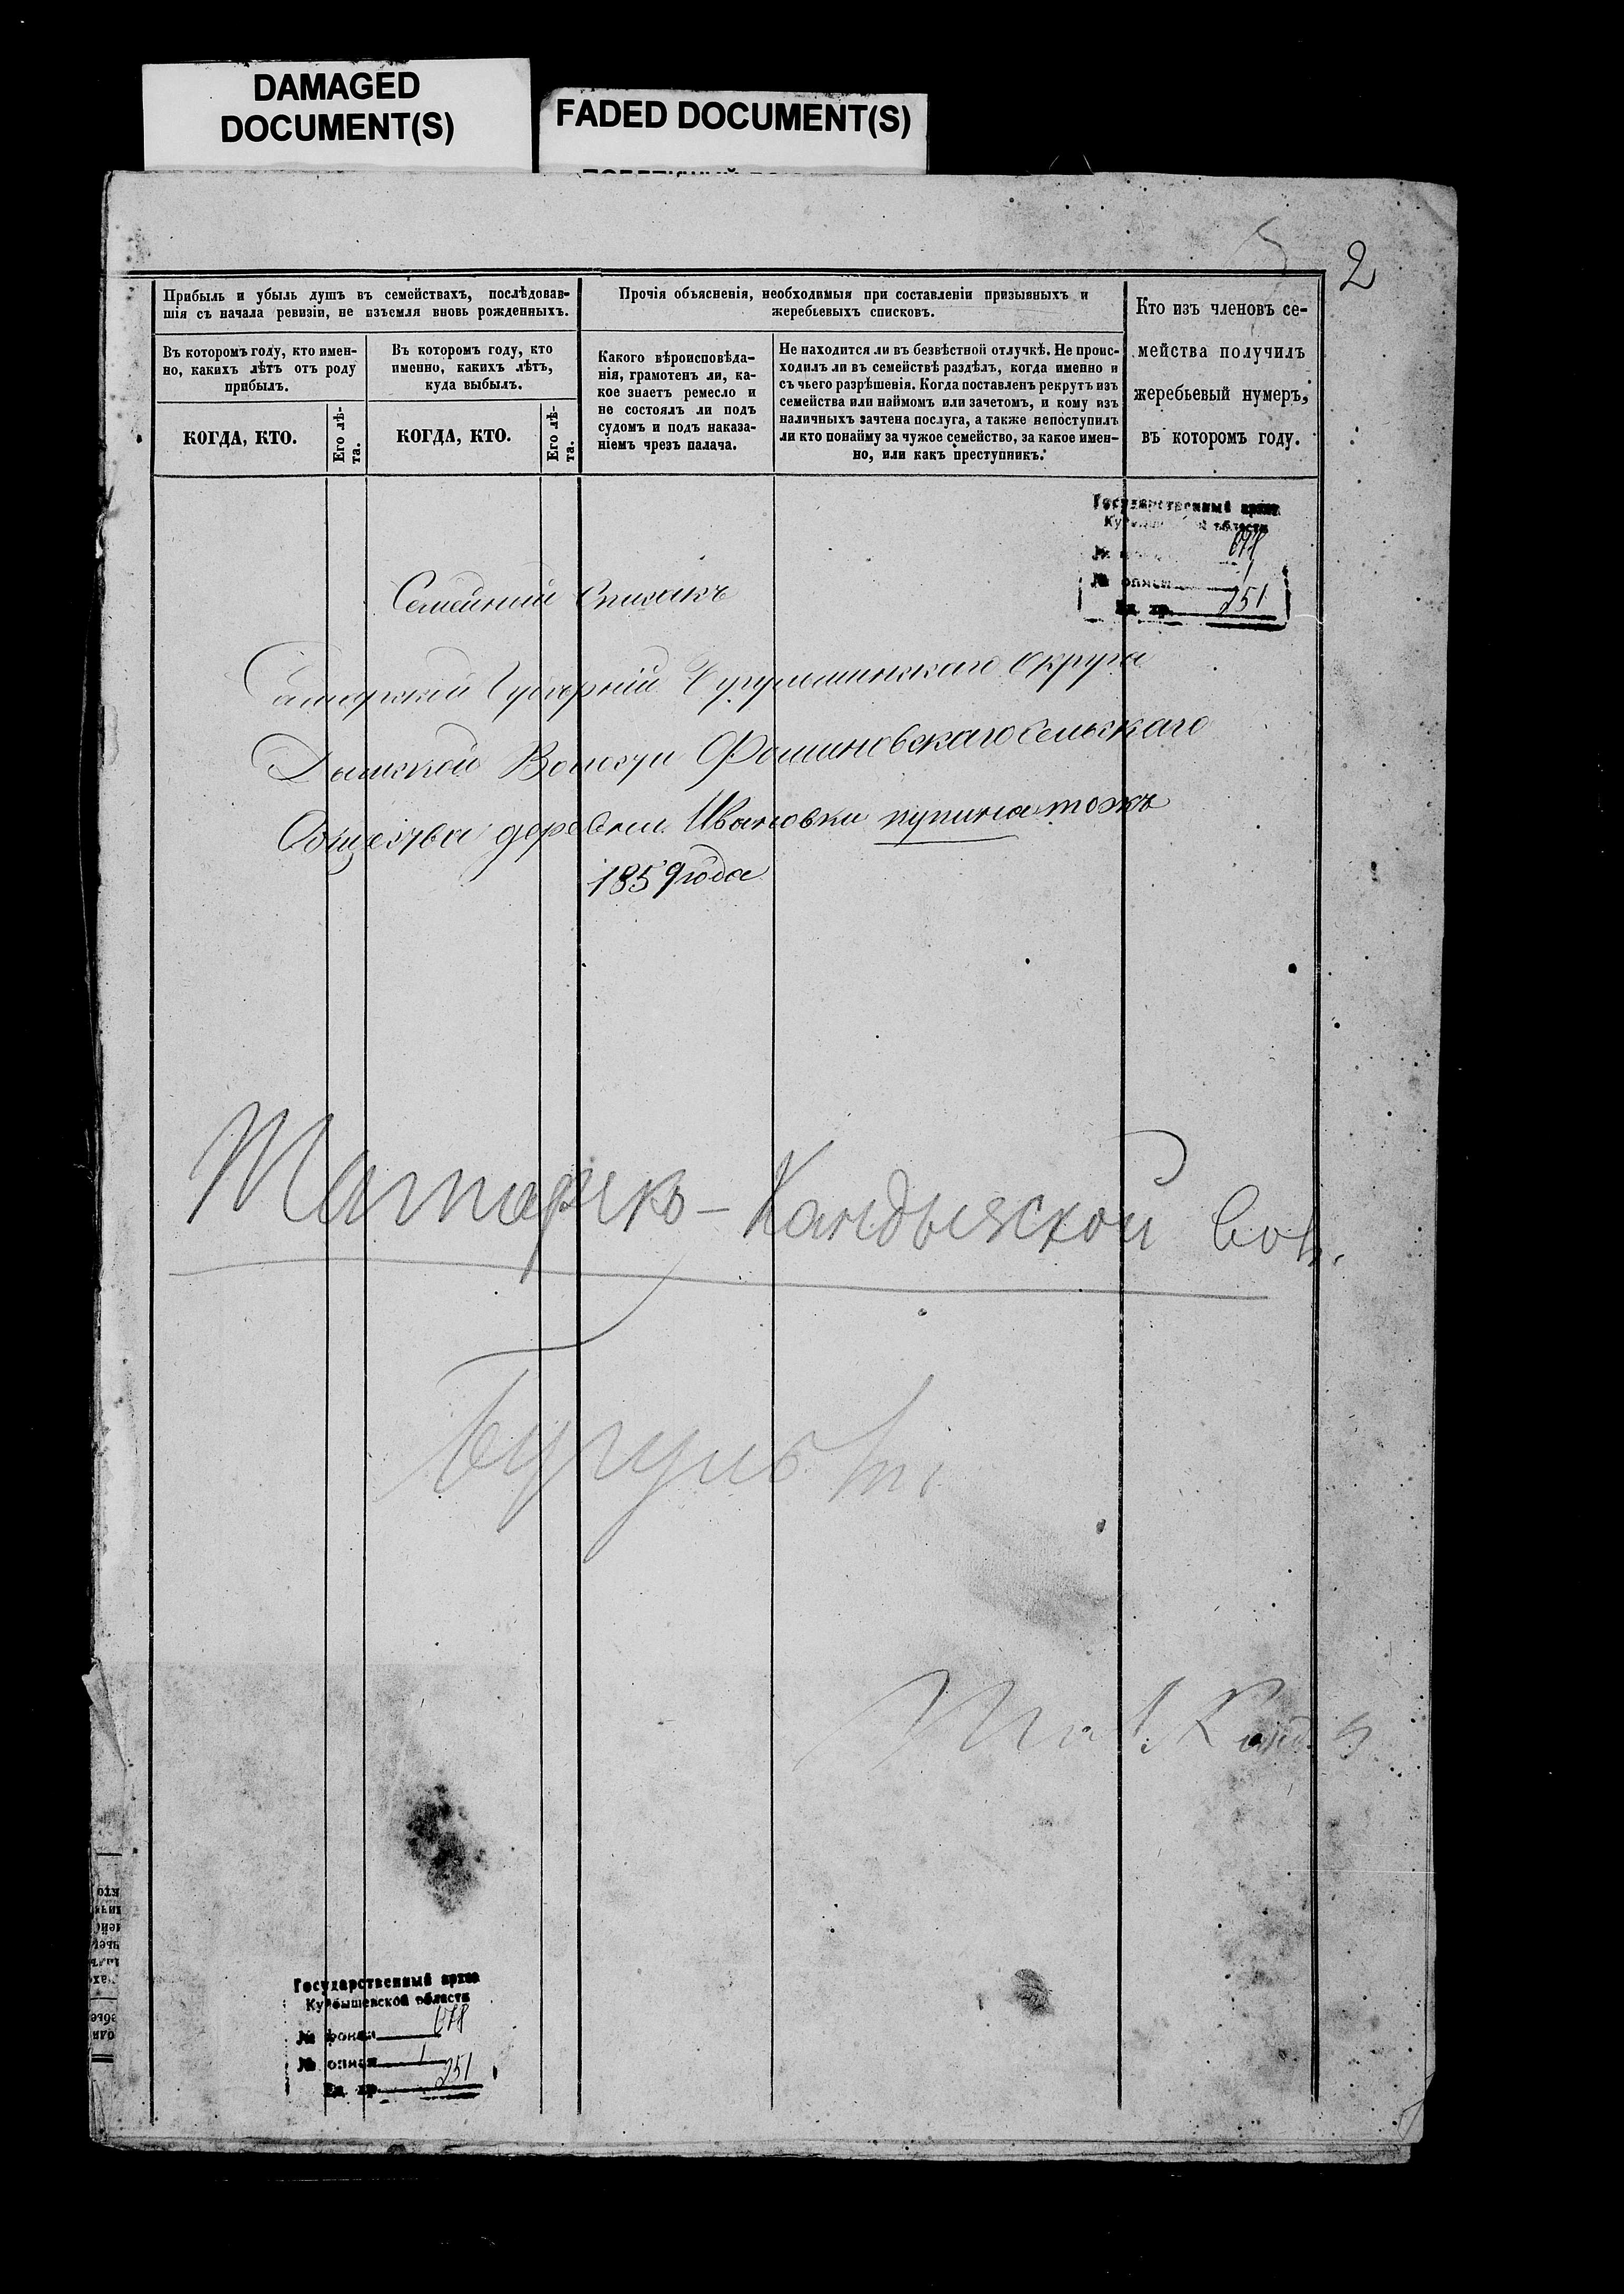 DAMAGED
DOCUMENT(S)
FADED DOCUMENT(S)
2
Прибыль и убыль душъ въ семействахъ, послѣдовав-
шія съ начала ревизіи, не изъемля вновь рожденныхъ.
Въ которомъ году, кто имен-
но, какихъ лѣтъ отъ роду
прибылъ.
КОГДА, КТО.
Его лѣ-
та.
Въ которомъ году, кто
именно, какихъ лѣтъ,
куда выбылъ.
КОГДА, КТО.
Его лѣ-
та.
Прочія объясненія, необходимыя при составленіи призывныхъ и
жеребьевыхъ списковъ.
Какого вѣроисповѣда-
нія, грамотенъ ли, ка-
кое знаетъ ремесло и
не состоялъ ли подъ
судомъ и подъ наказа-
ніемъ чрезъ палача.
Не находится ли въ безвѣстной отлучкѣ. Не проис-
ходилъ ли въ семействѣ раздѣлъ, когда именно и
съ чьего разрѣшенія. Когда поставленъ рекрутъ изъ
семейства или наймомъ или зачетомъ, и кому изъ
наличныхъ зачтена послуга, а также непоступилъ
ли кто понайму за чужое семейство, за какое имен-
но, или какъ преступникъ.
Кто изъ членовъ се-
мейства получилъ
жеребьевый нумеръ,
въ которомъ году.
Государственный архив
Куйбышевской области
678
№ описи 1
Ед. хр. 251
Семейный Списокъ
Самарской Губерніи Бугульминскаго Округа
Дымской Волости Фоминовскаго сельскаго
Общества деревни Ивановки пупина тожъ
1859 года
Татарско-Кандызской вол.
Бугульм.
Государственный архив
Куйбышевской области
№ фонда 678
№ описи 1
Ед. хр. 251